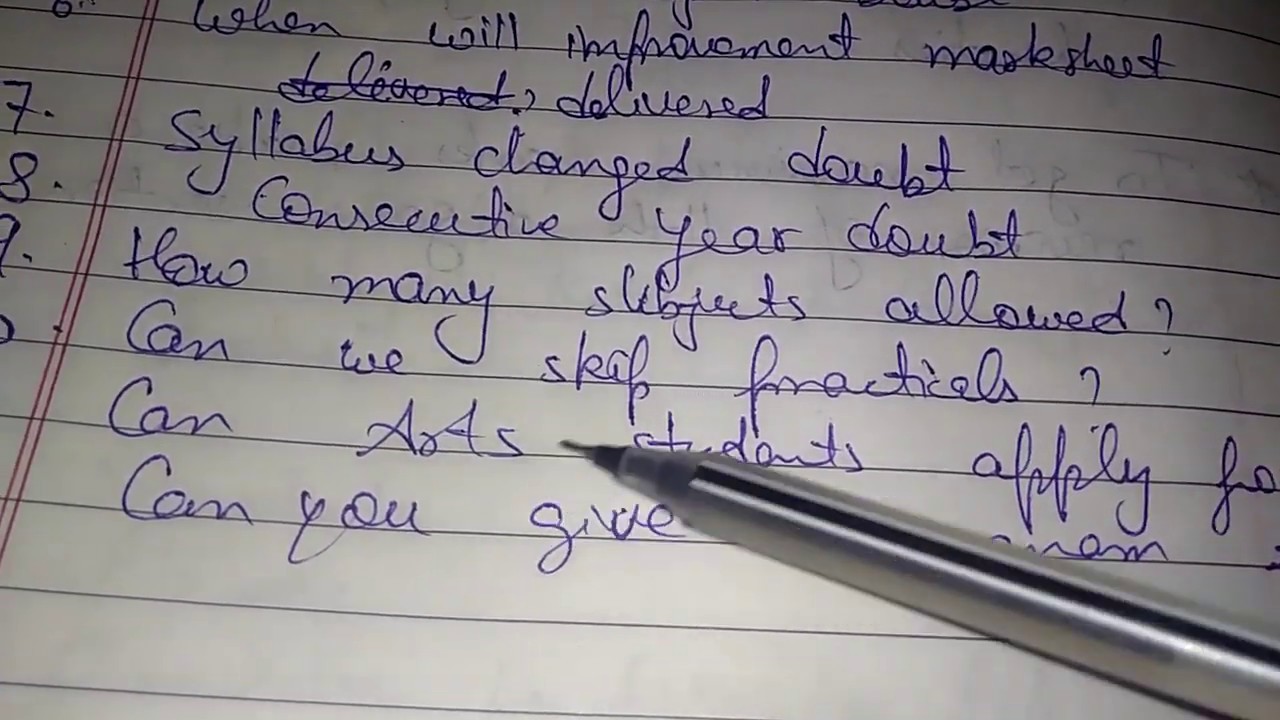 When will improvement marksheet
delivered? delivered
7. Syllabus changed doubt
8. Consecutive year doubt
9. How many subjects allowed?
Can we skip practicals?
Can Arts students apply fo
Can you give